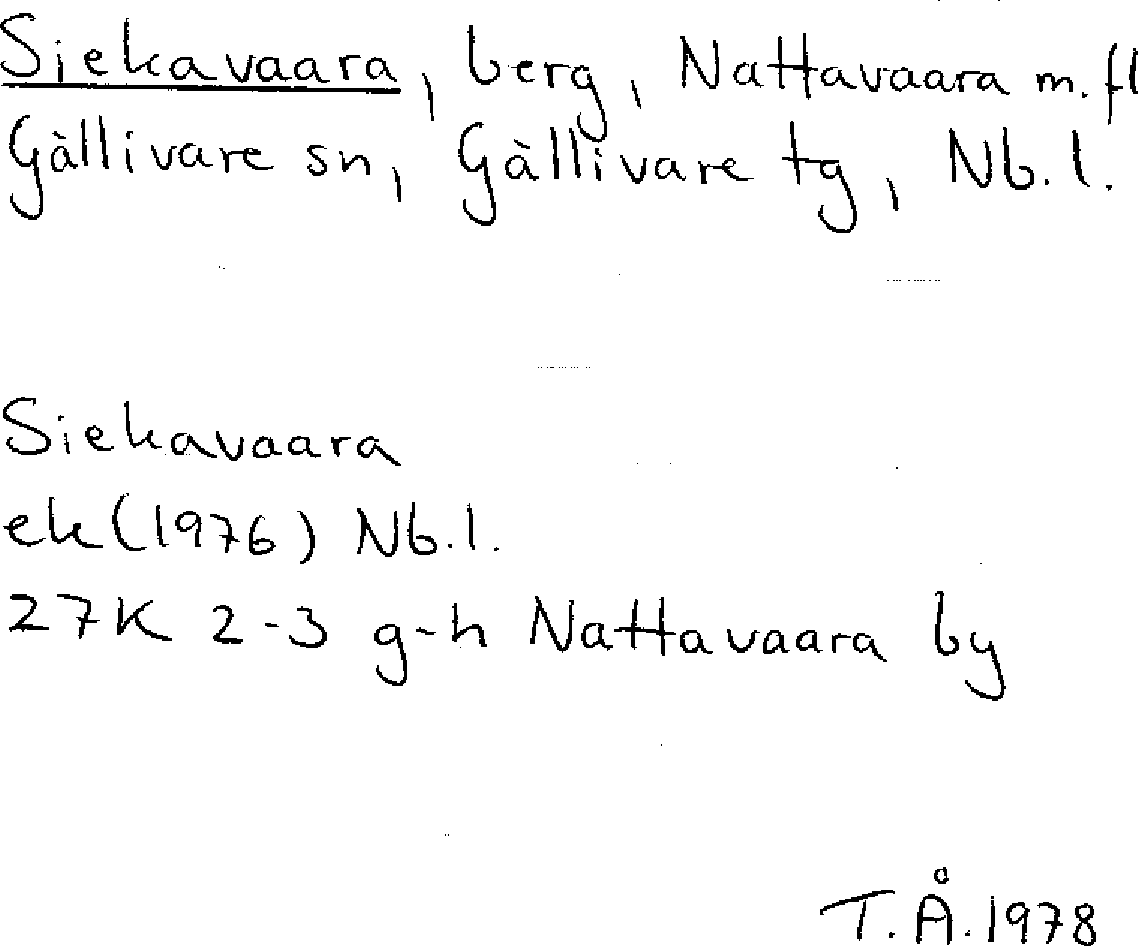 Siekavaara, berg, Nattavaara m.fl
Gällivare sn, Gällivare tg, Nb.l.
Siekavaara
ek (1976) Nb.l.
27K 2-3 g-h Nattavaara by
T.Å.1978